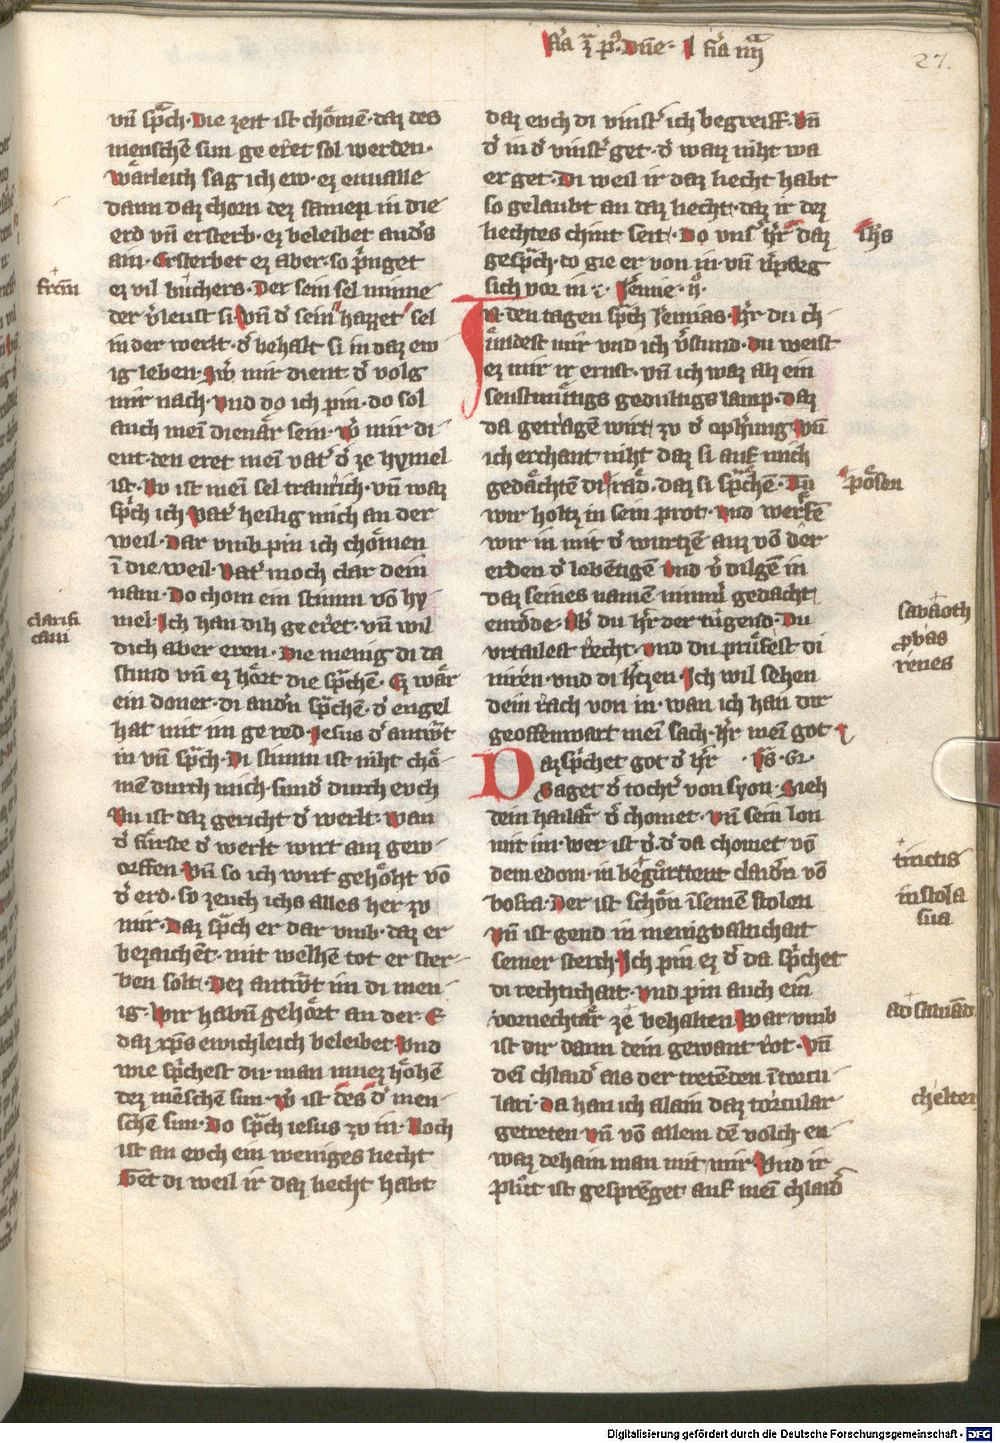 f̄ia z̄ p⁹ dn̄e · f̄ia iiij
27.
vn̄ sp̃ch · Die zeit ist chömē · daz des
menschē sun ge eret sol werden ·
wärleich sag ich ew · ez en valle
dann daz chorn dez samen in die
erd vn̄ ersterb · ez beleibet anď s
ain · Ersterbet ez aber · so p̃nget
ez vil büchers · Der sein sel minne
der v̉leust si · Vn̄ d̉ sein hazzet sel
in der werlt · d̉ behalt si in daz ew
ig leben · Sw̉ mir dient d̉ volg
mir nach · Vnd do ich pin · do sol
auch mei̅ dienär sein · w̉ mir di
ent · den eret mei̅ vat̉ d̉ ze hymel
ist · Nv ist mei̅ sel traurich · vn̄ waz
sp̃ch ich · Vat̉ heilig mich an der
weil · Dar vmb pin ich chömen
i̅ die weil · Vat̉ moch clar dein
nam · Do chom ein stimm vo̅ hy
mel · Ich han dih ge eret · vn̄ wil
dich aber eren · Die menig di da
stund vn̄ ez hört die sp̃chen · Ez wär
ein doner · di and̉n sp̃chen · d̉ engel
hat mit im ge red · Jesus d̉ antw̉t
in vn̄ sp̃ch · Di stimm ist niht chö
me̅ durch mich · sund̉ durch euch
Nu ist daz gericht d̉ werlt · wan
d̉ fürste d̉ werlt wirt auz gew
orffen · Vn̄ so ich wirt gehöht vo̅
d̉ erd · so zeuch ichs alles her zv
mir · Daz sp̃ch er dar vmb · daz er
bezaiche̅t · mit welhem tot er ster
ben solt · Dez antw̉t im di men
ig · Wir habn̄ gehört an der E
daz xp̄s ewichleich beleibet · Vnd
wie sp̃chest du man muez höhen
dez me̅schen sun · w̉ ist des d̉ men
schen sun · Do sp̃ch iesus zv in · Noch
ist an euch ein weniges liecht
Get di weil ir daz liecht habt
fr̃em
clarifi
caui
daz euch di vinst̉ ich begreiff · Vn̄
d̉ in d̉ vinst̉ get · d̉ waiz niht wa
er get · Di weil ir daz liecht habt
so gelaubt an daz liecht · daz ir dez
liechtes chint seit · Do vns̉ h̉r daz
gesp̃ch · do gie er von in · vn̄ v̉parg
sich vor in :· Jer̄me · ij°·
In den tagen sp̃ch Jemias · H̉r du ch
ündest mir vnd ich v̉stund · du weist
ez mir ir ernst · vn̄ ich waz alz ein
senftmütigs gedultigs lamp · Daz
da getrage̅ wirt zv d̉ oph̉ung · Vn̄
ich erchant niht daz si auf mich
gedächte̅ di räd · daz si sp̃chen · Tu̅
wir holtz in sein prot · Vnd werfe̅
wir in mit d̉ wurtze̅ auz vo̅ der
erden d̉ lebe̅tigen · Vnd v̉ dilge̅ in
daz seines namen nimm̉ gedacht
e werde · Ab̉ du h̉r der tugend · Du
vrtailest recht · Vnd du prüfest di
nire̅n · vnd di h̉tzen · Ich wil sehen
dein rach von in · wan ich han dir
geoffenwart mei̅ sach · h̉r mei̅ got
Daz sp̃chet got d̉ h̉r · Js̄ · 62 ·
Saget d̉ tocht̉ von syon · Sieh
dein hailär d̉ chomet · Vn̄ sein lon
mit im · wer ist d̉ · d̉ da chomet vo̅
dem edom · in begürttent claid̉n vo̅
bosra · Der ist schön i̅ seinen stolen
Vn̄ ist gend in menigvaltichait
seiner sterch · Ich pin ez d̉ da sp̃chet
di rechtichait · Vnd pin auch ein
vornechtär ze behalten · War vmb
ist dir dann dein gewant rot · Vn̄
dei̅ chlaid̉ als der trete̅den i̅ torcu
lari · Da han ich alain daz torcular
getreten vn̄ vo̅ allem de̅ volch en
waz dehain man mit mir · Vnd ir
plut ist gespre̅get auf mei̅ chlaid̉
ih̄s
pösen
sabaoth
p̱bas
renes
tinctis
in stola
sua
ad saluād̄
chelter
Digitalisierung gefördert durch die Deutsche Forschungsgemeinschaft - DFG